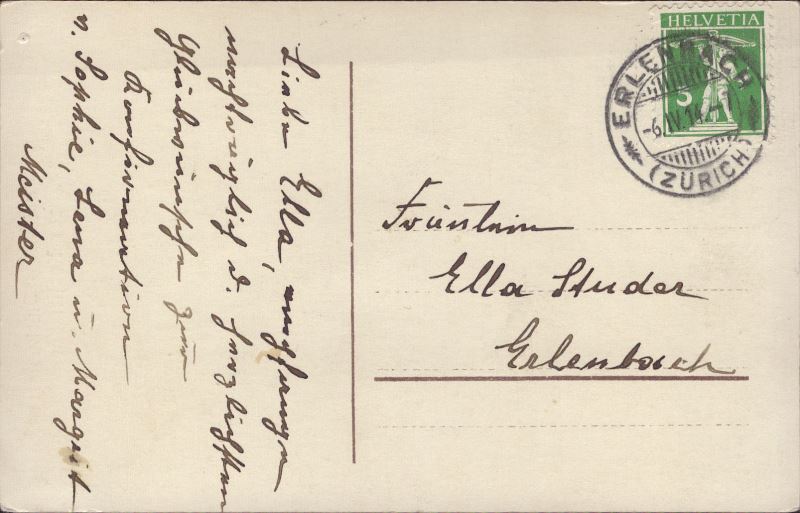 Liebe Ella, empfangen
nachträglich d. herzlichsten
Glückwünsche zur
Konfirmation
v. Sophie, Lena u. Margrit
Meister
HELVETIA
5
ERLENBACH
-6.IV.14.-7
(ZÜRICH)
Fräulein
Ella Studer
Erlenbach